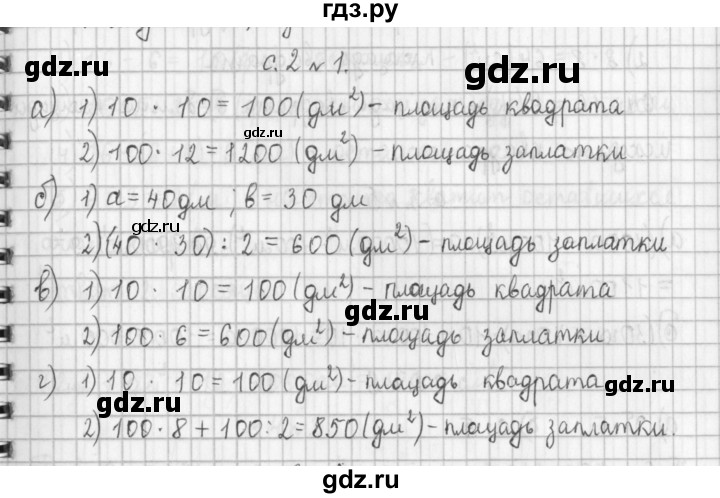 гдз.ру
с. 2 № 1.
gdz.ru gdz.ru
а) 1) 10 · 10 = 100 (дм²) - площадь квадрата
gdz.ru
2) 100 · 12 = 1200 (дм²) - площадь заплатки
б) 1) а = 40 дм ; в = 30 дм
gdz.ru
2) (40 · 30) : 2 = 600 (дм²) - площадь заплатки
в) 1) 10 · 10 = 100 (дм²) - площадь квадрата
gdz.ru
2) 100 · 6 = 600 (дм²) - площадь заплатки
г) 1) 10 · 10 = 100 (дм²) - площадь квадрата
gdz.ru gdz.ru
2) 100 · 8 + 100 : 2 = 850 (дм²) - площадь заплатки.
гдз.ру